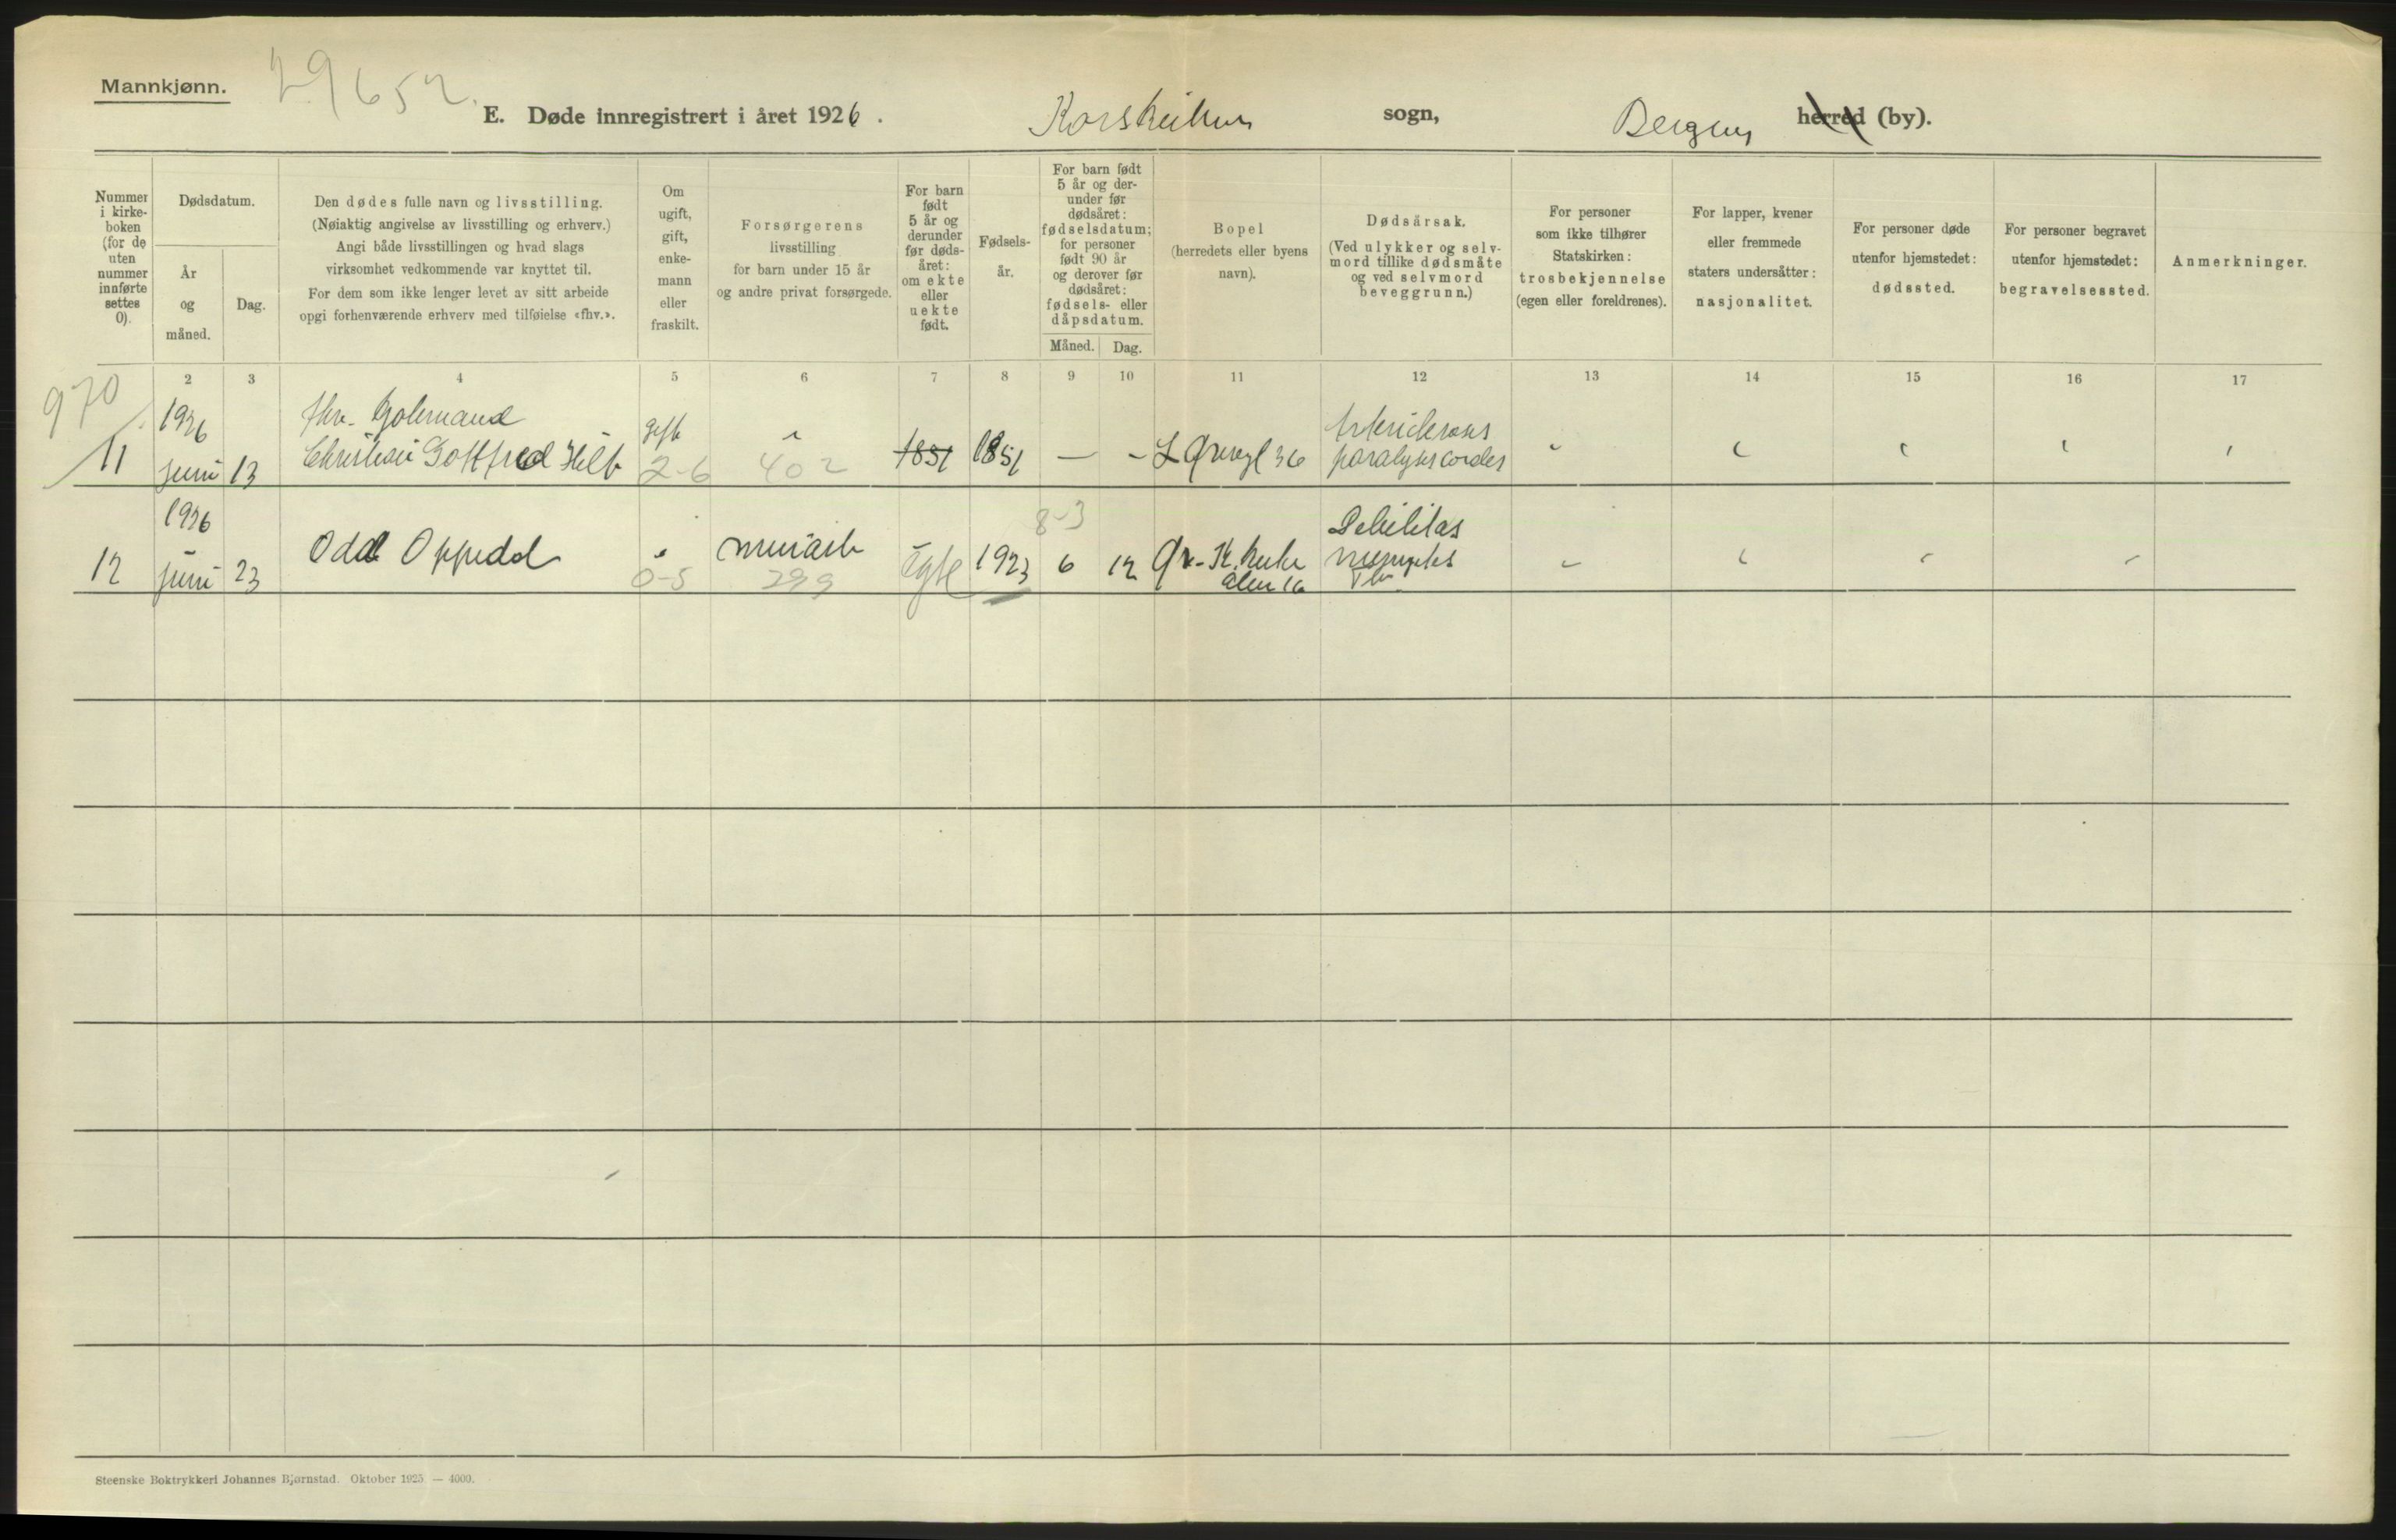 Mannkjønn.
29652
E. Døde innregistrert i året 1926.
Korskirken sogn,
Bergen herred (by).
Nummer
i kirke-
boken
(for de
uten
nummer
innførte
settes
0).
Dødsdatum.
År
og
måned.
Dag.
Den dødes fulle navn og livsstilling.
(Nøiaktig angivelse av livsstilling og erhverv.)
Angi både livsstillingen og hvad slags
virksomhet vedkommende var knyttet til.
For dem som ikke lenger levet av sitt arbeide
opgi forhenværende erhverv med tilføielse «fhv.».
Om
ugift,
gift,
enke-
mann
eller
fraskilt.
Forsørgerens
livsstilling
for barn under 15 år
og andre privat forsørgede.
For barn
født
5 år og
derunder
før døds-
året:
om ekte
eller
uekte
født.
Fødsels-
år.
For barn født
5 år og der-
under før
dødsåret:
fødselsdatum;
for personer
født 90 år
og derover før
dødsåret:
fødsels- eller
dåpsdatum.
Måned.
Dag.
Bopel
(herredets eller byens
navn).
Dødsårsak.
(Ved ulykker og selv-
mord tillike dødsmåte
og ved selvmord
beveggrunn.)
For personer
som ikke tilhører
Statskirken:
trosbekjennelse
(egen eller foreldrenes).
For lapper, kvener
eller fremmede
staters undersåtter:
nasjonalitet.
For personer døde
utenfor hjemstedet:
dødssted.
For personer begravet
utenfor hjemstedet:
begravelsessted.
Anmerkninger.
2 3 4 5 6 7 8 9 10 11 12 13 14 15 16 17
970
1926
fhv.
gift
11 juni 13 Christian Gottfred 1851 1851 — -
2-6 402
paralysis cordis
1926
8-3
Debilitas
12 juni 23 Odd Oppedal murarb Egte 1923 6 12
0-5 299
16
Steenske Boktrykkeri Johannes Bjørnstad. Oktober 1925 — 4000.